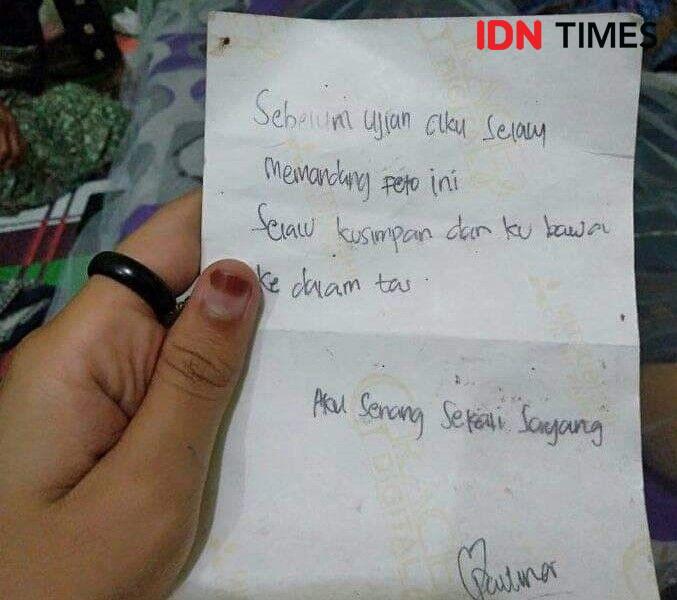 IDN TIMES
Sebelum ujian aku selalu
memandang foto ini
Selalu kusimpan dan ku bawa
ke dalam tas.
Aku senang sekali sayang
DIGITAL